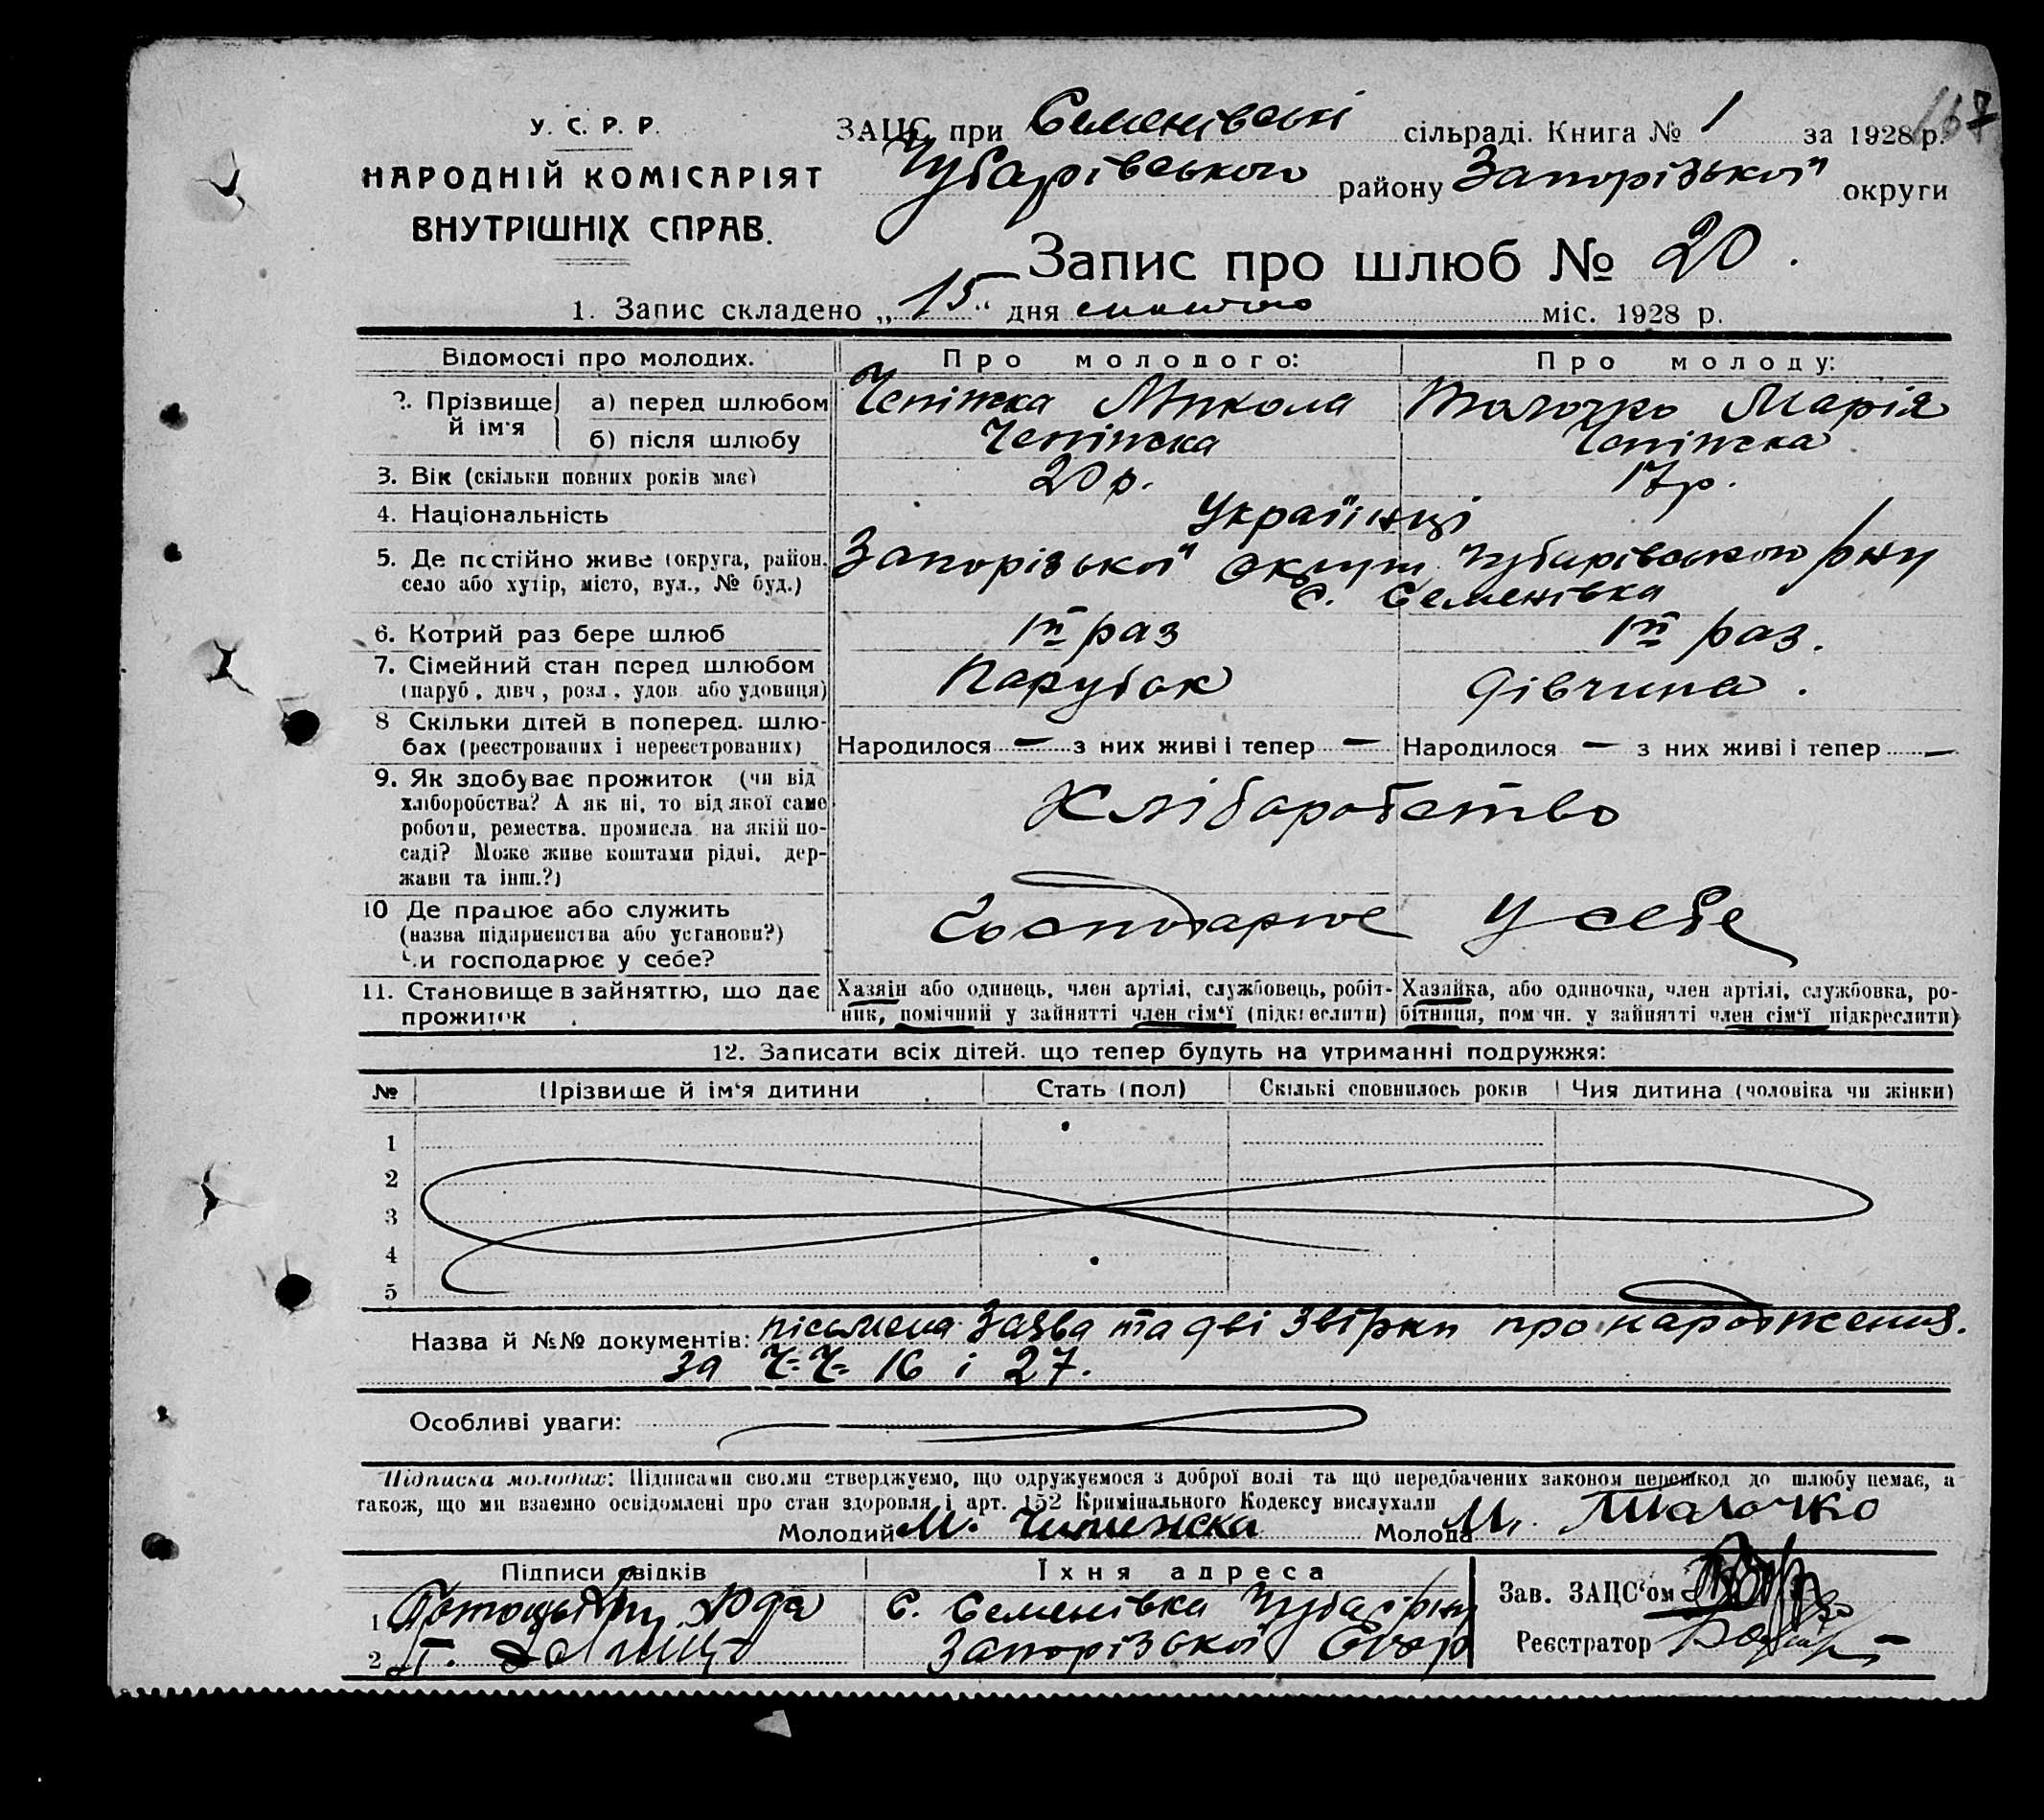 167
У. С. Р. Р.
НАРОДНІЙ КОМІСАРІЯТ
ВНУТРІШНІХ СПРАВ.
ЗАЦС при Семенівскі сільраді. Книга № 1 за 1928 р.
Чубарівського району Запорізької округи
Запис про шлюб № 20.
1. Запис складено „15“ дня міс. 1928 р.
Відомості про молодих. Про молодого: Про молоду:
2. Прізвище й ім'я а) перед шлюбом Чепіжка Микола Толочко Марія
б) після шлюбу Чепіжка Чепіжка
3. Вік (скільки повних років має) 20 р. 17 р.
4. Національність Українці
5. Де постійно живе (округа, район, Запорізької округи Чубарівського р-ну
село або хутір, місто, вул., № буд.) с. Семенівка
6. Котрий раз бере шлюб 1й раз 1й раз.
7. Сімейний стан перед шлюбом Парубок дівчина.
(паруб., дівч., розл., удов. або удовиця)
8 Скільки дітей в поперед. шлю-
бах (реєстрованих і нереєстрованих) Народилося — з них живі і тепер — Народилося — з них живі і тепер —
9. Як здобуває прожиток (чи від
хліборобства? А як ні, то від якої саме Хліборобство
роботи, ремества, промисла на якій по-
саді? Може живе коштами рідні, дер-
жави та інш.?)
10 Де працює або служить Господарює у себе
(назва підприємства або установи?)
Чи господарює у себе?
11. Становище в зайняттю, що дає Хазяїн або одинець, член артілі, службовець, робіт- Хазяйка, або одиночка, член артілі, службовка, ро-
прожиток ник, помічний у зайнятті член сім'ї (підкреслити) бітниця, помічн. у зайнятті член сім'ї підкреслити)
12. Записати всіх дітей, що тепер будуть на утриманні подружжя:
№ Прізвище й ім'я дитини Стать (пол) Скількі сповнилось років Чия дитина (чоловіка чи жінки)
1
2
3
4
5
Назва й №№ документів: пісьмена заява та дві звірки про народження.
за Ч.Ч. 16 і 27.
Особливі уваги:
Підписка молодих: Підписами своїми стверджуємо, що одружуємося з доброї волі та що передбачених законом перешкод до шлюбу немає, а
також, що ми взаємно освідомлені про стан здоровля і арт. 152 Кримінального Кодексу вислухали
Молодий М. Чипижка Молода М. Толочко
Підписи свідків Їхня адреса
Зав. ЗАЦС'ом
1 с. Семенівка Чубар. р-ну
Реєстратор
2 Г. Запорізької